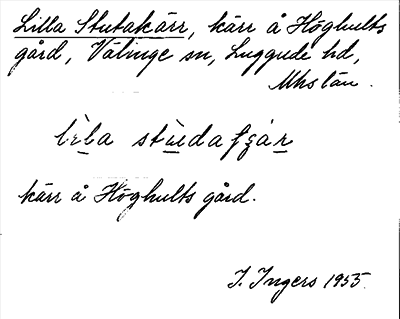 Lilla Stutakärr, kärr å Höghults
gård, Välinge sn, Luggude hd,
Mhs län.
kärr å Höghults gård.
I. Ingers 1955.